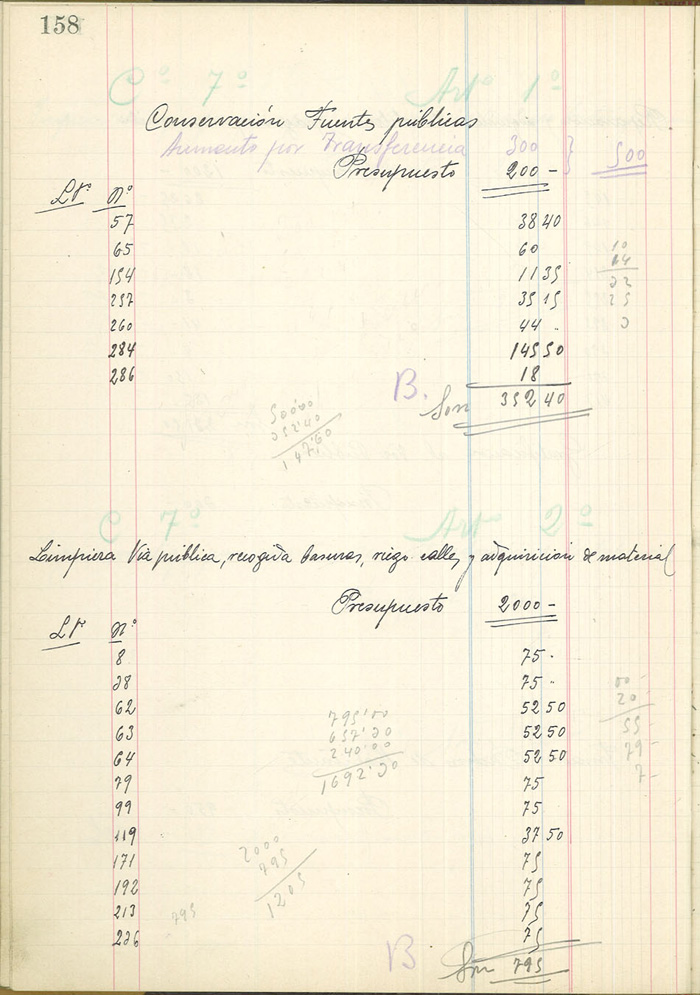 158
C° 7° Art° 1°
Conservación Fuentes públicas
Aumento por Transferencia 300 } 500
Presupuesto 200 -
Lº Nº
57 38 40
65 60
154 11 35
257 35 15
260 44 .
284 145 50
286 18
B. Son 352 40
500,00
352,40
147,60
C 7° Art° 2°
Limpieza Vía pública, recogida basuras, riego calles y adquisición de material
Presupuesto 2000 -
Nº
8 75 .
28 75 -
62 52 50
63 52 50
64 52 50
79 75
99 75
119 37 50
171 75
192 75
213 75
226 75
B Son 795
795'00
657'20
240'00
1692'20
2000
795
1205
795